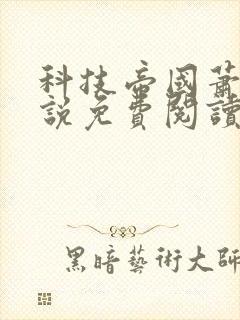 科技帝國蕭
說免費閱讀
黑暗藝術大師